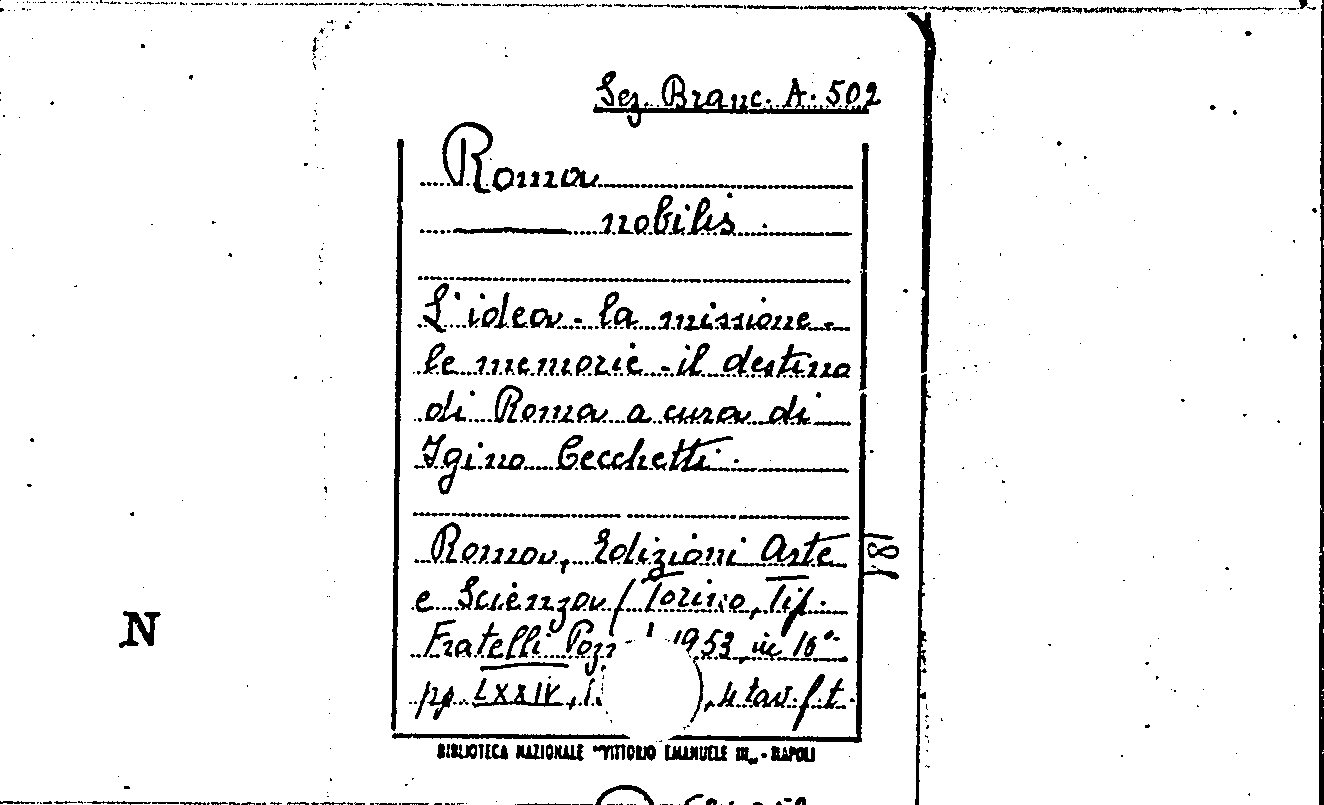 Sez. Branc. A. 502
Roma
nobilis.
L'idea - la missione -
le memorie - il destino
di Roma a cura di
Igino Cecchetti.
Roma, Edizioni Arte
e Scienza / Torino, Tip.
Fratelli 1953, in 16°
pp. LXXIV, , 4 tav. f. t.
BIBLIOTECA NAZIONALE "VITTORIO EMANUELE III" - NAPOLI
N